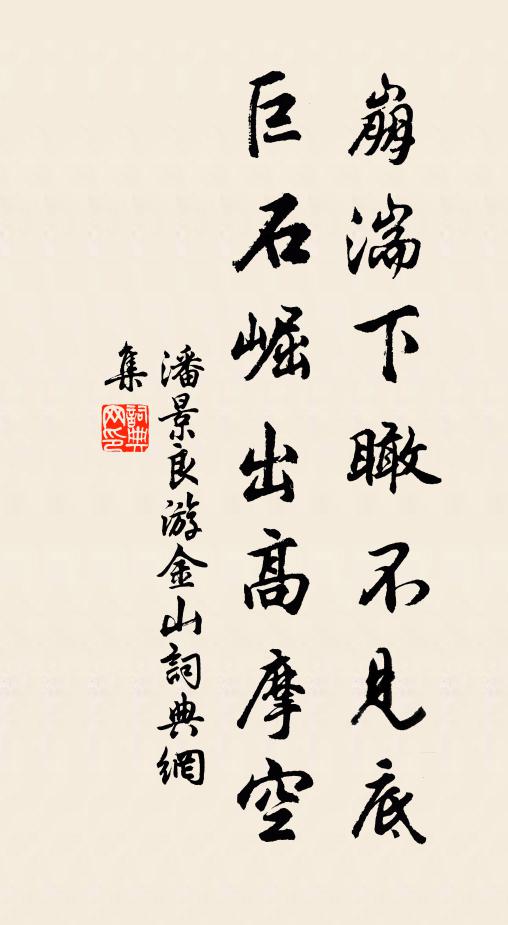 崩湍下瞰不見底
巨石崛出高摩空
潘景良游金山詞典網
集
詞典
网印